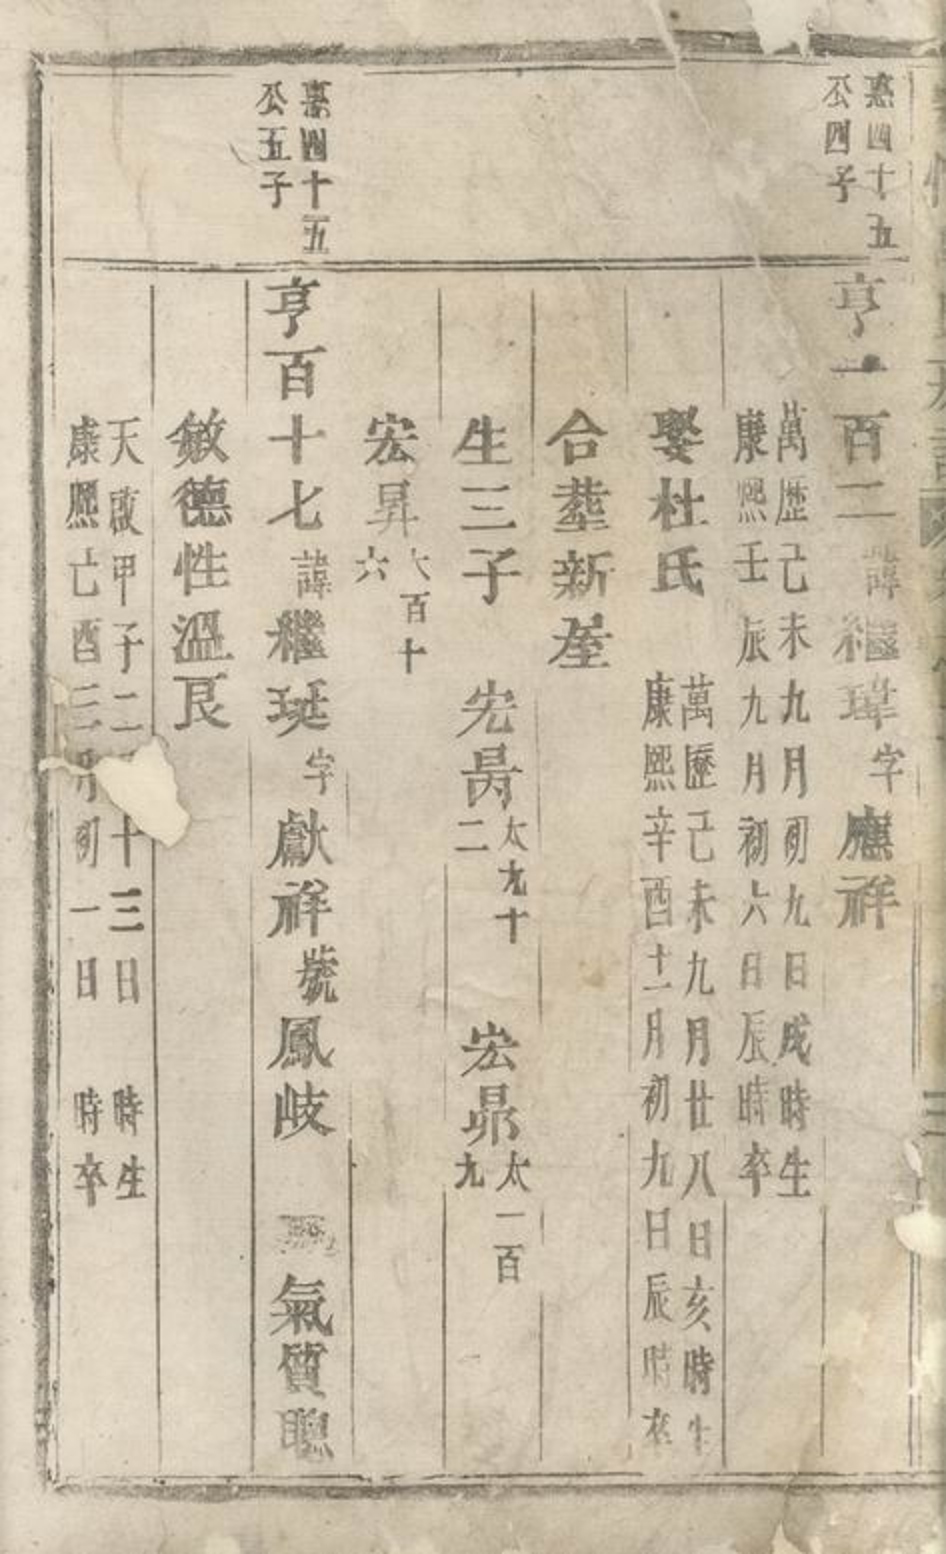 惠四十五
公四子
亨一百二 諱繼瑋 字應祥
萬歷己未九月初九日戌時生
康熙壬辰九月初六日辰時卒
娶杜氏
萬歷己未九月廿八日亥時生
康熙辛酉十二月初九日辰時卒
合塟新屋
生三子 宏昺 太九十二 宏昴 太一百九
宏昇 太百十六
惠四十五
公五子
亨百十七 諱繼珽 字獻祥 號鳳岐 氣質聰
敏德性溫良
天啟甲子二十三日 時生
康熙己酉三月初一日 時卒